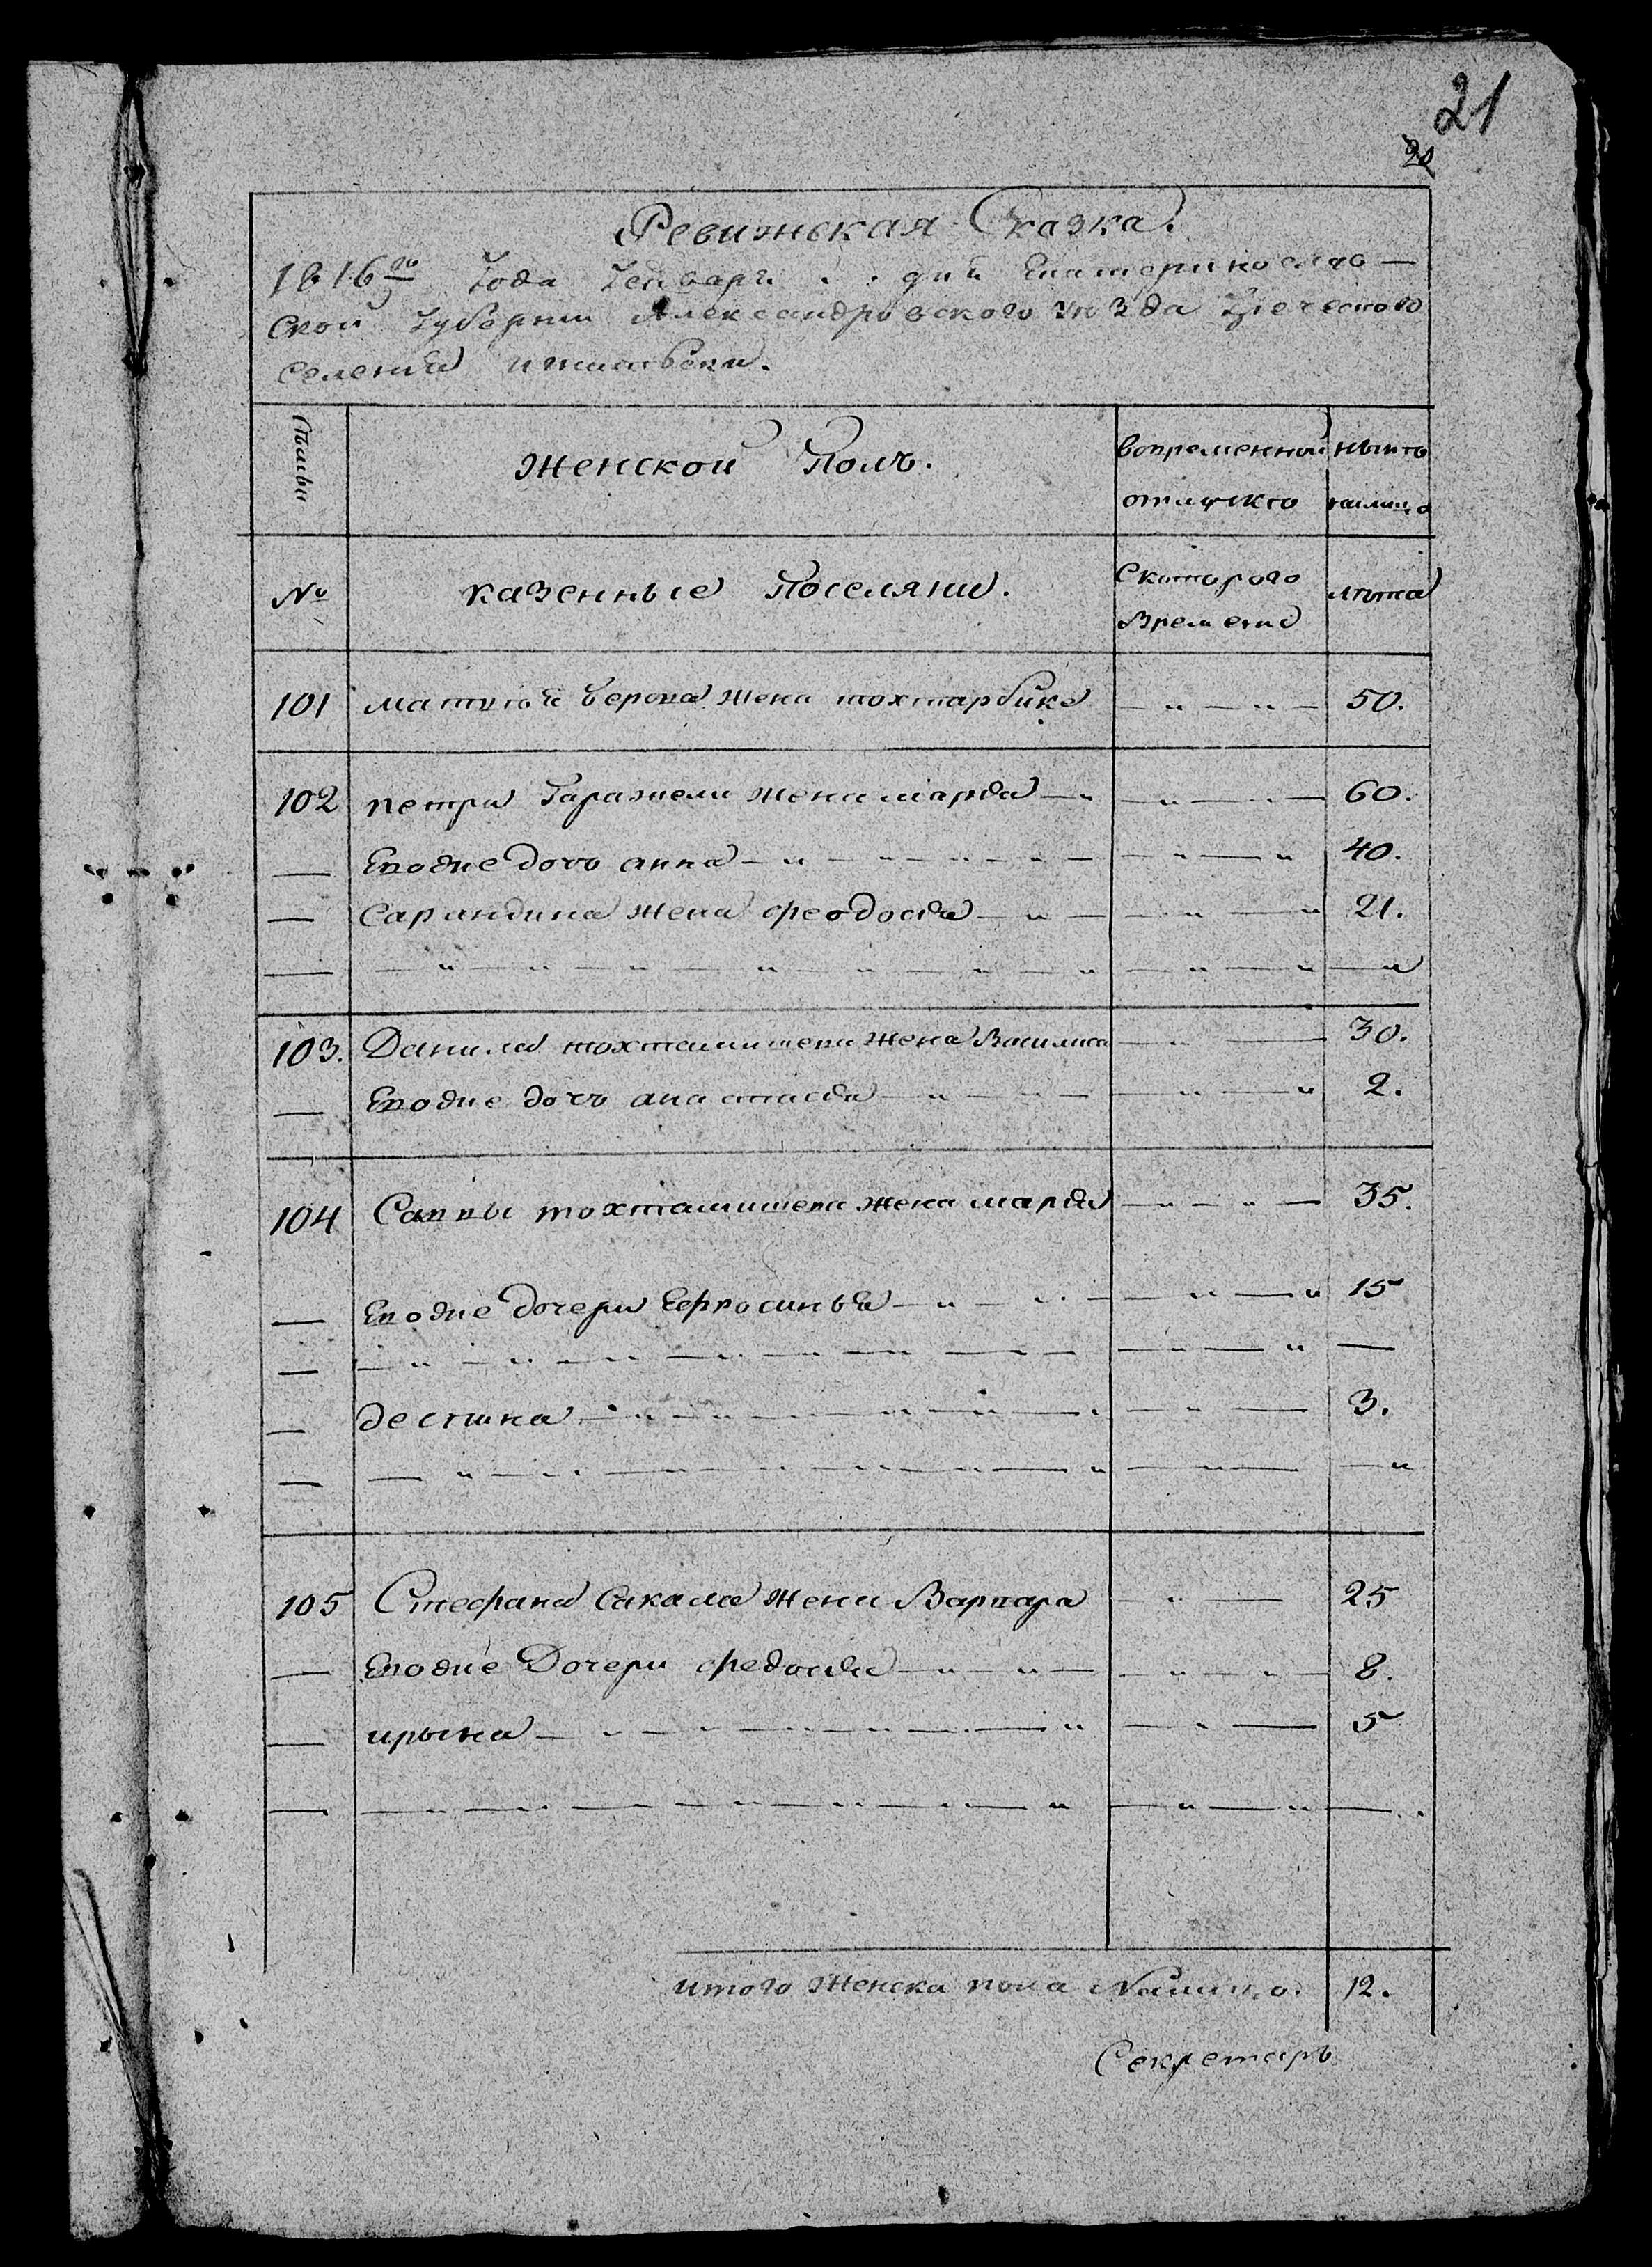 21
20
Ревижская Сказка.
1816го Года Генваря . . дня Екатеринослав—
ской Губернии Александровского уезда Греческого
селения
Статьи
Женской Полъ.
вовременной отлучке
ныне налицо
№
казенные Поселяни.
Скоторого Времени
лѣта
101 жена тохтарбике — " — " — 50.
102 петра жена маρiа — " — " — 60.
— Еводне дочъ анна — " — " — " — " — " — 40.
— Сарандина жена феодосiа — " — " — " 21.
— — " — " — " — " — " — " — " — " — "
103. Данила тохтамишева жена Василиса — " — 30.
— Еводне дочъ анастасiа — " — " — " — " 2.
104 Саввы тохтамишева жена марiа — " — " — 35.
— Еводне дочери Ефросинья — " — " — " — " 15
— — " — " — " — " — " — " — " — " —
— деспина — " — " — " — " — " — 3.
— — " — " — " — " — " — " — " — — "
105 Стефана Сакала жена Варвара — " — 25
— Еводне Дочери федосiа — " — " — " — " — 8.
— ирына — " — " — " — " — " — " — 5
— — " — " — " — " — " — " — " — " — " — . .
итого женска пола Налицо. 12.
Секретарь